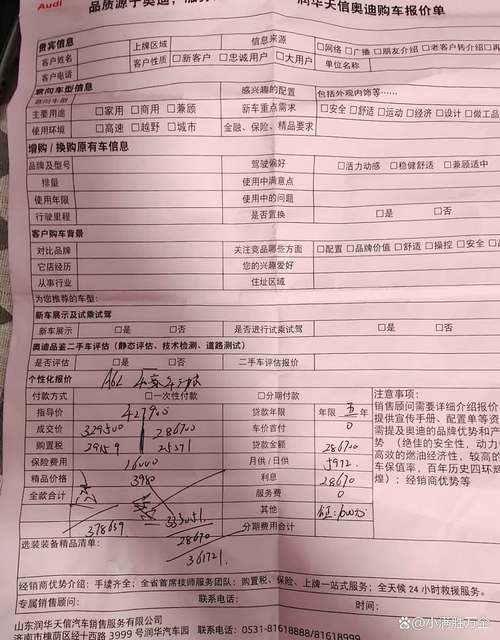 Audi 品质源于奥迪，服务 润华天信奥迪购车报价单
贵宾信息 上牌区域 信息来源 □网络 □广播 □朋友介绍 □老客户转介绍 □再
客户姓名 客户性质 □新客户 □忠诚用户 □大用户 单位名称
客户电话
意向车型信息 感兴趣的配置 包括外观内饰等……
意向车型
主要用途 □家用 □商用 □兼顾 新车重点需求 □安全 □舒适 □运动 □经济 □设计 □做工品
使用环境 □高速 □越野 □城市 金融、保险、精品要求
增购 / 换购原有车信息
品牌及型号 驾驶偏好 □活力动感 □稳健舒适 □兼顾适中
排量 使用中满意点
使用年限 使用中的问题
行驶里程 是否置换 □是 □否
客户购车背景
对比品牌 关注竞品哪些方面 □配置 □品牌价值 □舒适 □操控 □安全 □品
它店经历 您的兴趣爱好
从事行业 住址区域
为您推荐的车型：
新车展示及试乘试驾
新车展示 □是 □否 是否进行试乘试驾 □是 □否
奥迪品鉴二手车评估（静态评估、技术检测、道路测试）
是否评估 □是 □否 二手车评估报价
个性化报价 A6L
付款方式 □一次性付款 □分期付款
指导价 427900 贷款年限 年限 五 年
成交价 329500 286700 车价首付 0
购置税 29159 25371 贷款金额 286700
保险费用 16000 月供 / 日供 5972
精品价格 3980 利息 28670
全款合计 服务费 0
其他
378639 333051 分期费用合计
28670
361721
选装装备精品清单：
注意事项：
销售顾问需要详细介绍报价
提供宣传手册、配置单等资
需提及奥迪的品牌优势和产
势（绝佳的安全性，动力
高效的燃油经济性，较高的
车保值率，百年历史四环
煌）；经销商优势等
经销商优势介绍：手续齐全；全省首席技师服务团队；购置税、保险、上牌一站式服务；全天候 24 小时救援服务。
专属销售顾问： 联系电话： 时间：
山东润华天信汽车销售服务有限公司
济南市槐荫区经十西路 3999 号润华汽车园 联系电话：0531-81618888/81618999
@小满胜万全